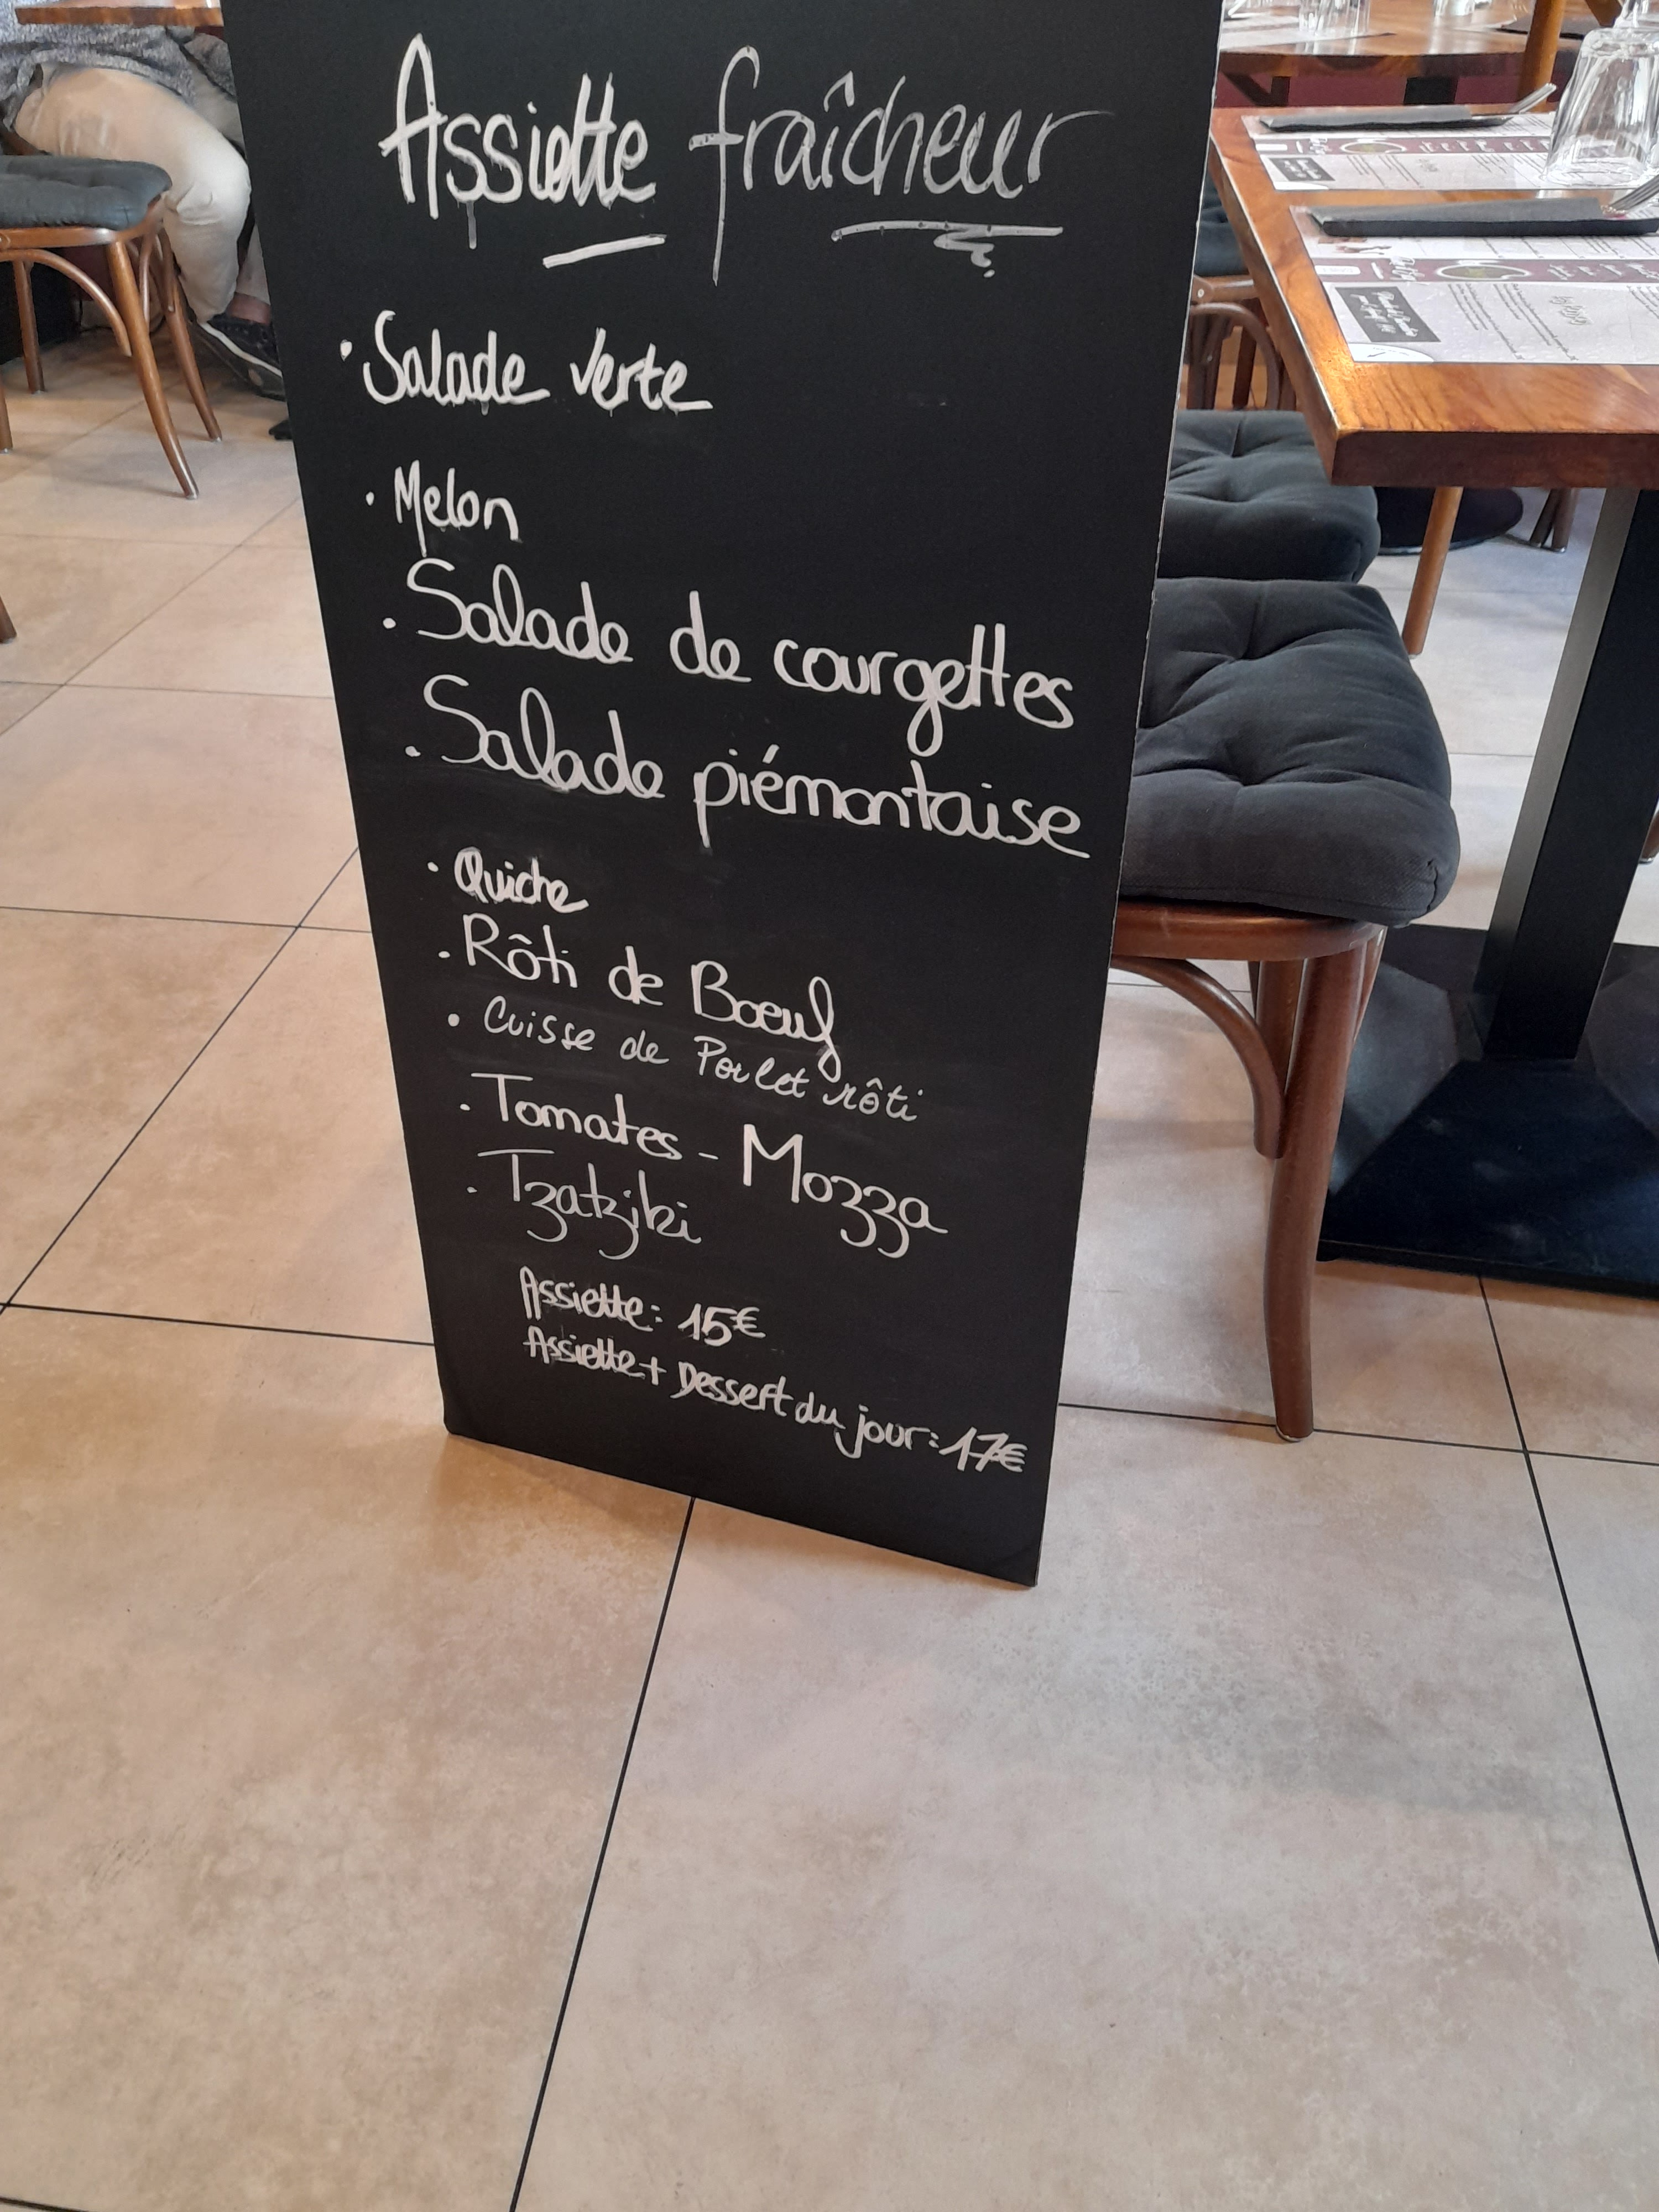 Assiette fraîcheur
· Salade verte
· Melon
· Salade de courgettes
· Salade piémontaise
· Quiche
· Rôti de Boeuf
· Cuisse de Poulet rôti
· Tomates - Mozza
· Tzatziki
Assiette: 15€
Assiette + Dessert du jour: 17€